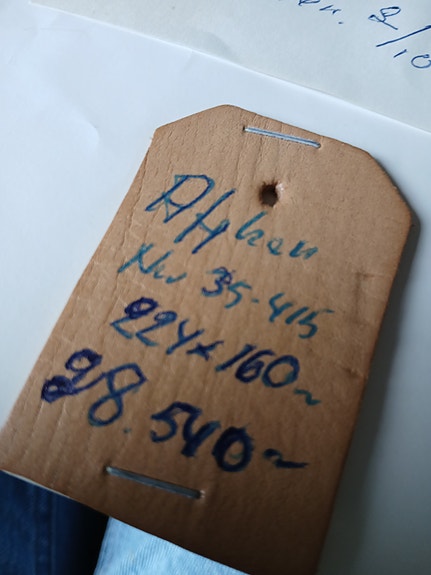 8/10
Afghan
Nr 35-415
224x160~
28.540~